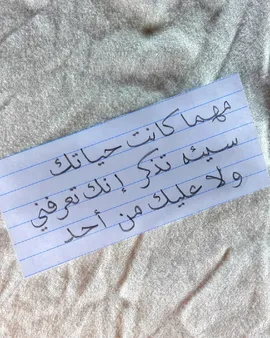 مهما كانت حياتك
سيئه تذكر إنك تعرفني
ولا عليك من أحد